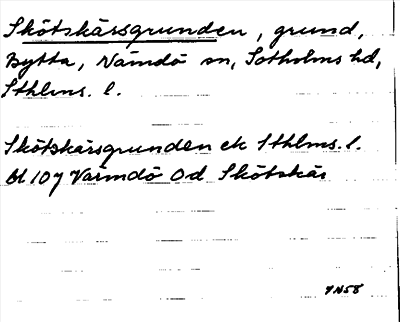 Skötskärsgrunden, grund,
Bytta, Nämdö sn, Sotholms hd,
Sthlms. l.
Skötskärsgrunden ek Sthlms. l.
bl 107 Värmdö Od Skötskär
YN58